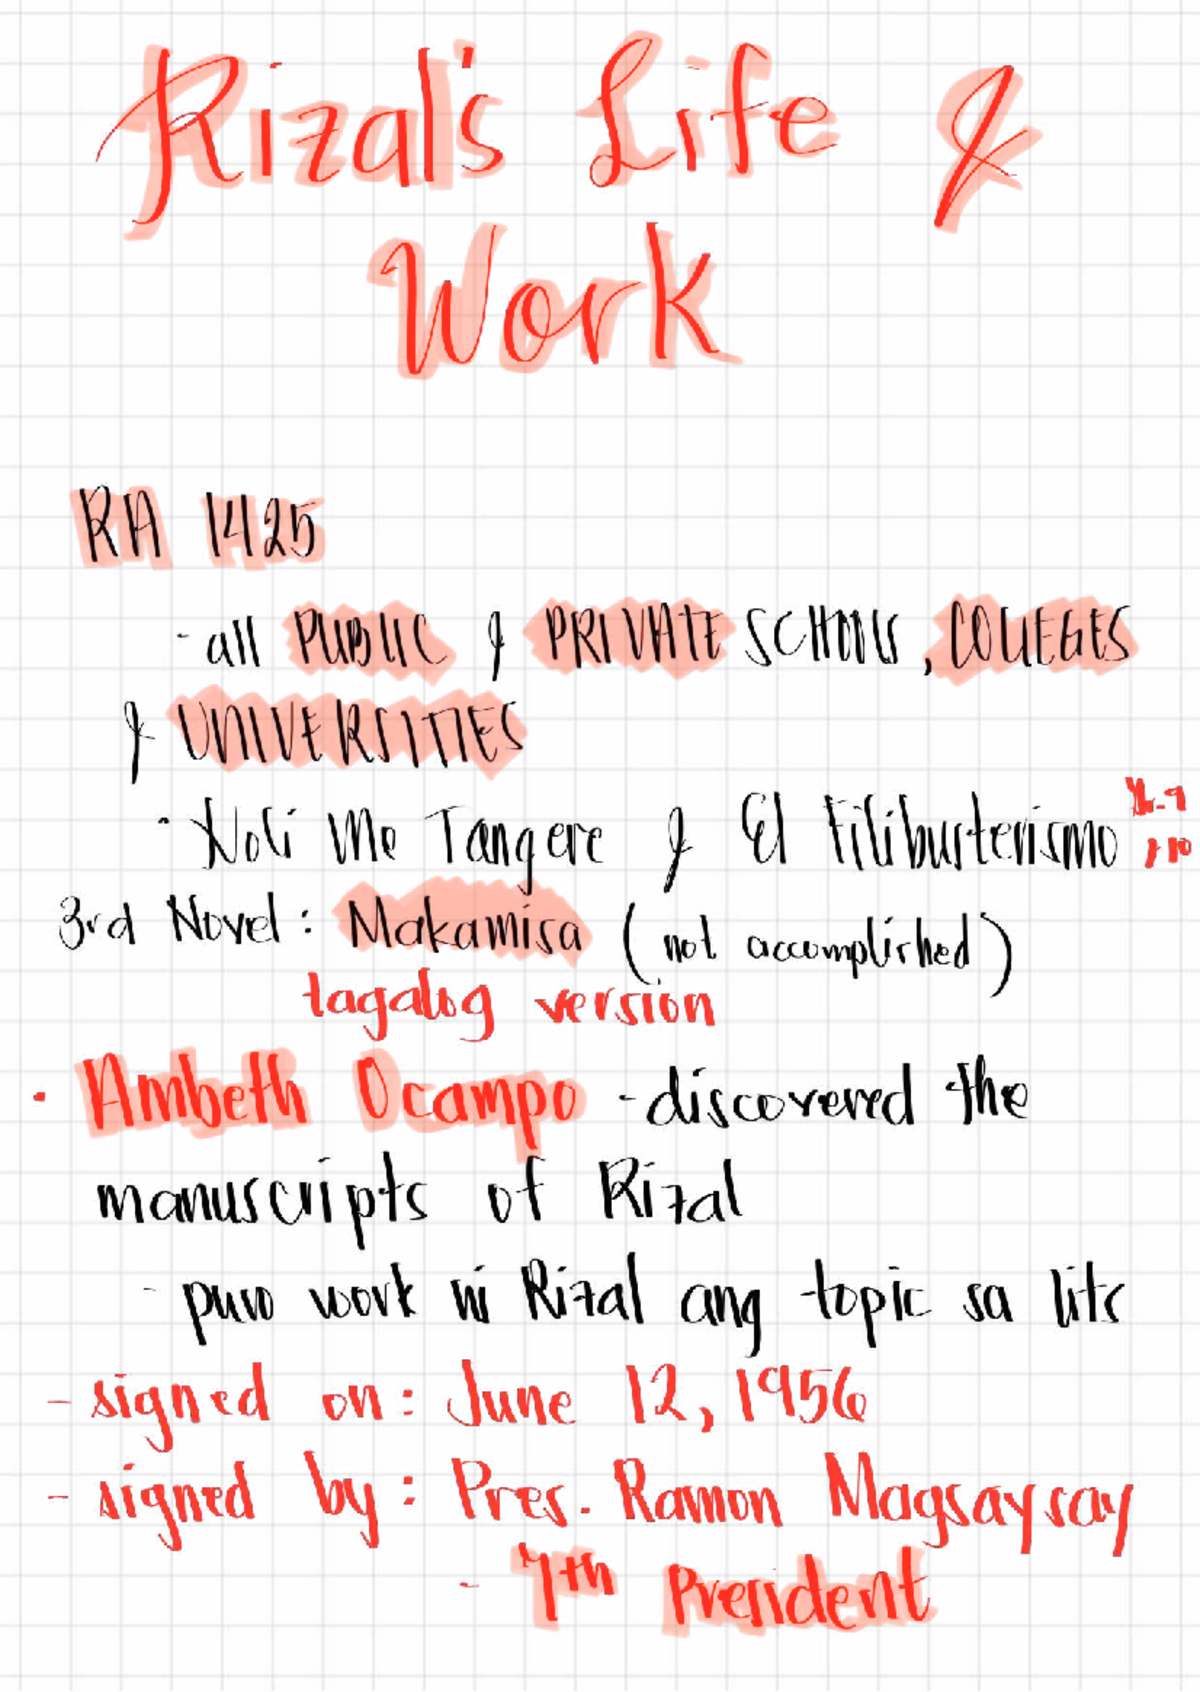 Rizal's Life &
Work
RA 1425
- all PUBLIC & PRIVATE SCHOOLS, COLLEGES
& UNIVERSITIES
- Noli Me Tangere & El Filibusterismo
3rd Novel: Makamisa (not accomplished)
tagalog version
• Ambeth Ocampo - discovered the
manuscripts of Rizal
- puro work ni Rizal ang topic sa
- signed on: June 12, 1956
- signed by: Pres. Ramon Magsaysay
- 7th President